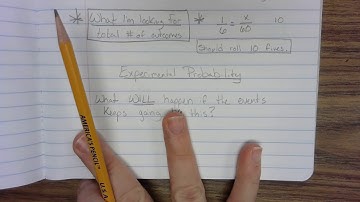 * What I'm looking for
total # of outcomes
* 1/6 = x/60 10
Should roll 10 fives.
Experimental Probability
What WILL happen if the events
Keeps going this?
AMERICA'S PENCIL U.S.